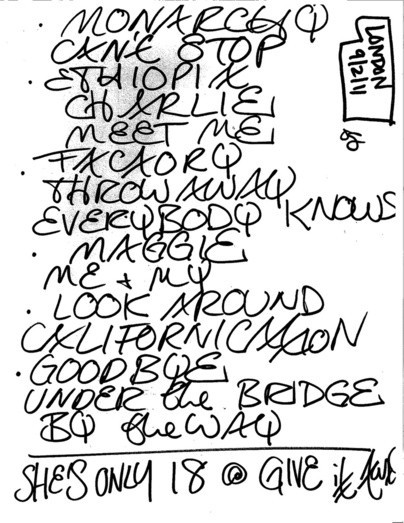 MONARCHY
CAN'T STOP
ETHIOPIA
CHARLIE
MEET ME
FACTORY
THROWAWAY
EVERYBODY KNOWS
MAGGIE
ME & MY
LOOK AROUND
CALIFORNICATION
GOODBYE
UNDER the BRIDGE
BY the WAY
SHES ONLY 18 @ GIVE it
LONDON
9/2/11